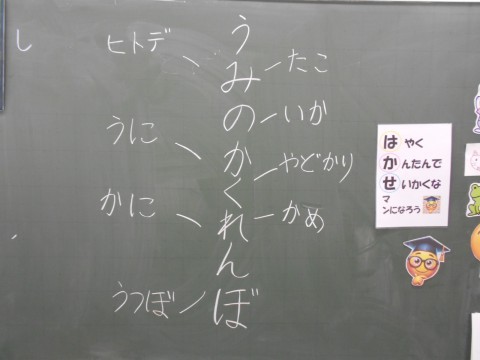 し
うみのかくれんぼ
ヒトデ
うに
かに
うつぼ
たこ
いか
やどかり
かめ
はやく
かんたんで
せいかくな
マンになろう